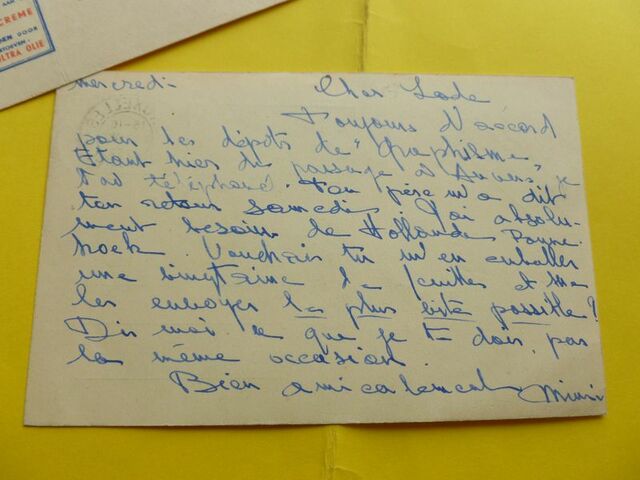 AAN
CREME
VOOR
ULTRA OLIE
mercredi - Cher Lode
Toujours d'accord
pour les dépôts de "Graphisme"
Etant hier de passage à Anvers je
t'ai téléphoné. Ton père m'a dit
ton retour samedi. J'ai absolu-
ment besoin de Hollande Panne-
koek. Voudrais tu m'en emballer
une vingtaine de feuilles et me
les envoyer le plus vite possible?
Dis moi ce que je te dois par
la même occasion.
Bien amicalement